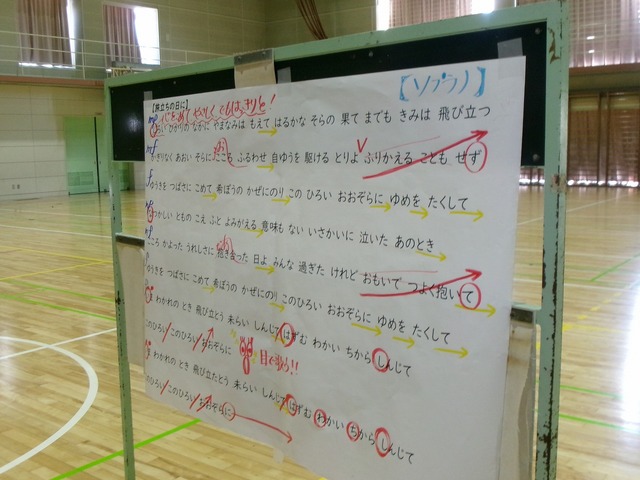 【ソプラノ】
【旅立ちの日に】
心をこめてやさしくでもはっきりと！
mf しろい ひかりの なかに やまなみは もえて はるかな そらの 果て までも きみは 飛び立つ
mf かぎりなく あおい そらに こころ ふるわせ 自ゆうを 駆ける とりよ ふりかえる ことも せず
f ゆうきを つばさに こめて 希ぼうの かぜにのり この ひろい おおぞらに ゆめを たくして
なつかしい ともの こえ ふと よみがえる 意味も ない いさかいに 泣いた あのとき
こころ かよった うれしさに 抱き合った 日よ みんな 過ぎた けれど おもいで つよく抱いて
f ゆうきを つばさに こめて 希ぼうの かぜにのり このひろい おおぞらに ゆめを たくして
いま わかれの とき 飛び立とう 未らい しんじて はずむ わかい ちから しんじて
このひろい/このひろい/おおぞらに
目で歌う!!
いま わかれの とき 飛び立とう 未らい しんじて はずむ わかい ちから しんじて
このひろい/このひろい/おおぞらに